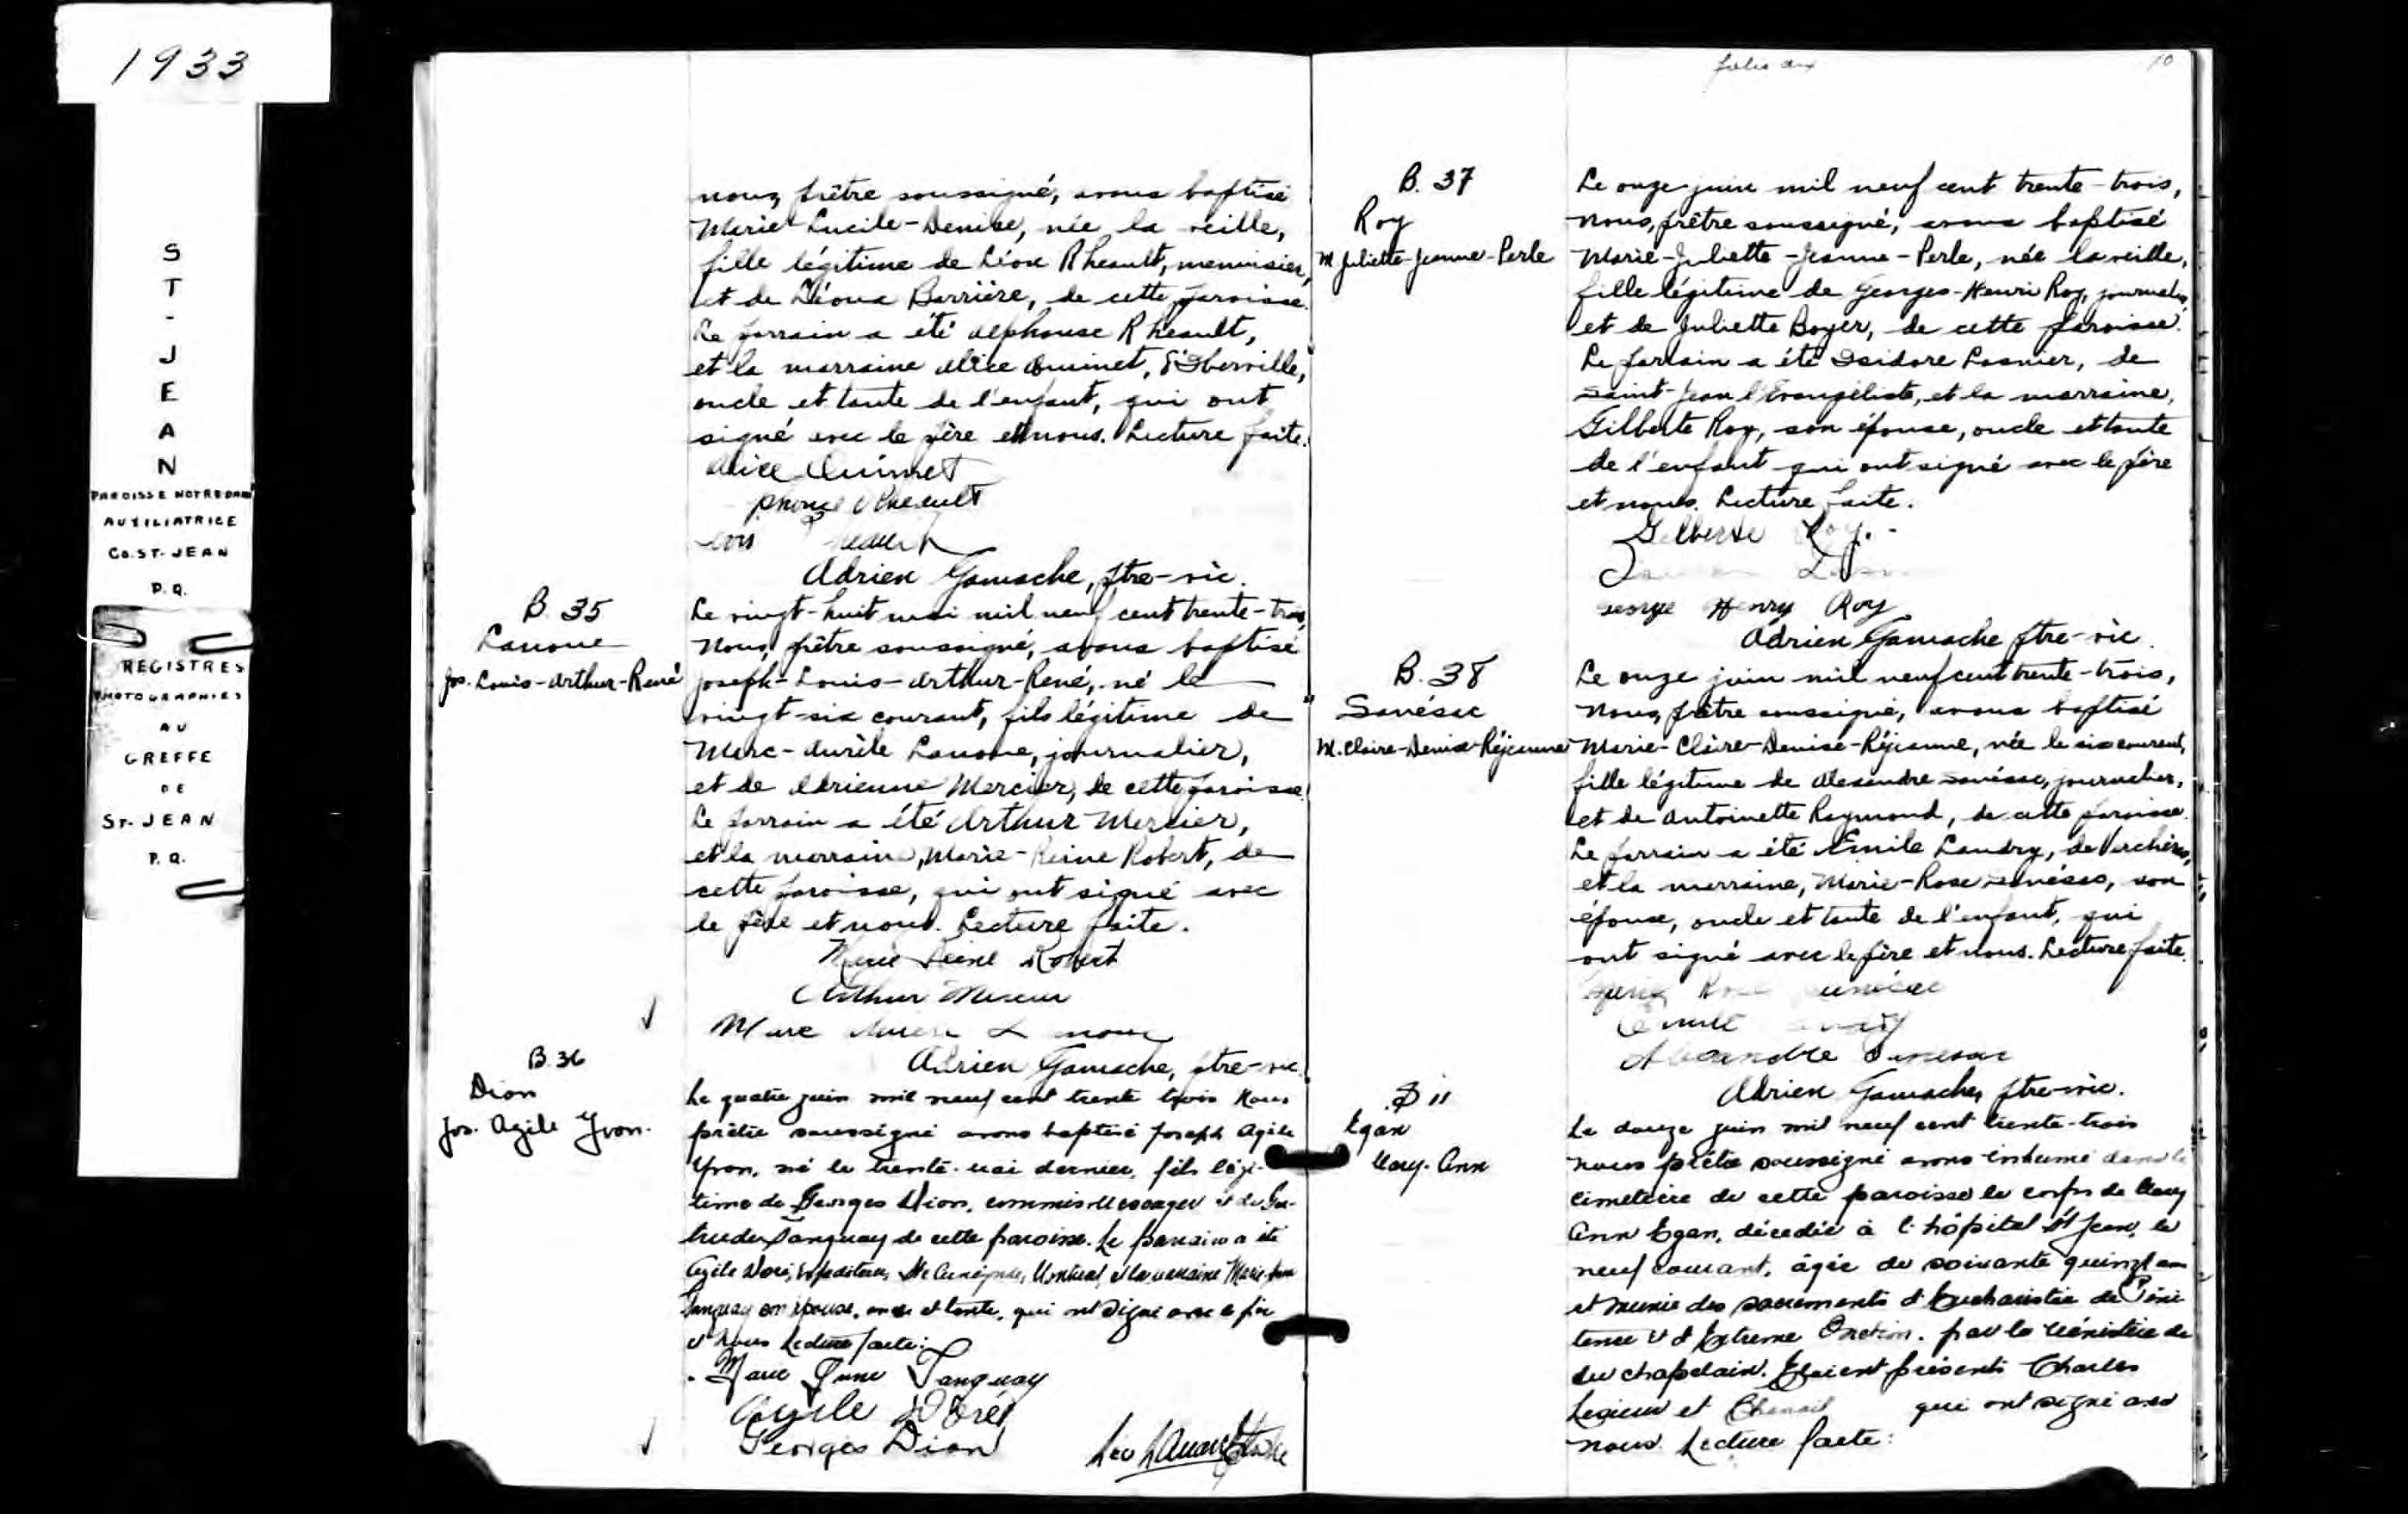 1933
ST-JEAN
PAROISSE NOTRE DAME
AUXILIATRICE
Co. ST-JEAN
P.Q.
REGISTRES
PHOTOGRAPHIES
AU
GREFFE
DE
ST-JEAN
P.Q.
nous, prêtre soussigné, avons baptisé
Marie Lucile-Denise, née la veille,
fille légitime de Léon Rheault, menuisier,
et de Léona Barrière, de cette paroisse.
Le parrain a été Alphonse Rheault,
et la marraine Alice Ouimet, d'Iberville,
oncle et tante de l'enfant, qui ont
signé avec le père et nous. Lecture faite.
Alice Ouimet
phonse Rheault
Adrien Gamache, ptre-vic.
B. 35
Lanoue
Jos. Louis-Arthur-René
Le vingt-huit mai mil neuf cent trente-trois,
Nous, prêtre soussigné, avons baptisé
Joseph-Louis-Arthur-René, né le
vingt-six courant, fils légitime de
Marc-Aurèle Lanoue, journalier,
et de Adrienne Mercier, de cette paroisse.
Le parrain a été Arthur Mercier,
et la marraine, Marie-Reine Robert, de
cette paroisse, qui ont signé avec
le père et nous. Lecture faite.
Marie Reine Robert
Arthur Mercier
Marc
Adrien Gamache, ptre-vic.
B. 36
Dion
Jos. Agile Yvon.
Le quatre juin mil neuf cent trente trois Nous
prêtre soussigné avons baptisé Joseph Agile
Yvon, né le trente-mai dernier, fils légi-
time de Georges Dion, commis Messager et de Ger-
trude Tanguay de cette paroisse. Le parrain a été
Agile Doré, expéditeur, Ste Cunégonde, Montréal, et la marraine Marie-Anne
Tanguay son épouse, oncle et tante, qui ont signé avec le père
et nous Lecture faite:
Marie Anne Tanguay
Agile Doré
Georges Dion
Léo
10
B. 37
Roy
M Juliette-Jeanne-Perle
Le onze juin mil neuf cent trente-trois,
Nous, prêtre soussigné, avons baptisé
Marie-Juliette-Jeanne-Perle, née la veille,
fille légitime de Georges-Henri Roy, journalier,
et de Juliette Boyer, de cette paroisse.
Le parrain a été Isidore Lasnier, de
Saint-Jean l'Évangéliste, et la marraine,
Gilberte Roy, son épouse, oncle et tante
de l'enfant qui ont signé avec le père
et nous. Lecture faite.
Gilberte Roy.
George Henry Roy
Adrien Gamache ptre-vic.
B. 38
Sénésac
M. Claire-Denise-Réjeanne
Le onze juin mil neuf cent trente-trois,
Nous, prêtre soussigné, avons baptisé
Marie-Claire-Denise-Réjeanne, née le six courant,
fille légitime de Alexandre Sénésac, journalier,
et de Antoinette Raymond, de cette paroisse.
Le parrain a été Émile Landry, de Verchères,
et la marraine, Marie-Rose Sénésac, son
épouse, oncle et tante de l'enfant, qui
ont signé avec le père et nous. Lecture faite.
Alexandre Senesac
Adrien Gamache, ptre-vic.
S 11
Egan
Mary-Ann
Le douze juin mil neuf cent trente-trois
nous prêtre soussigné avons inhumé dans le
cimetière de cette paroisse le corps de Mary
Ann Egan, décédée à l'hôpital St Jean, le
neuf courant, âgée de soixante quinze ans
et munie des sacrements d'Eucharistie de Péni
tence et d'Extreme Onction. par le ministère de
du chapelain. Etaient présents Charles
Lesieur et qui ont signé avec
nous. Lecture faite: